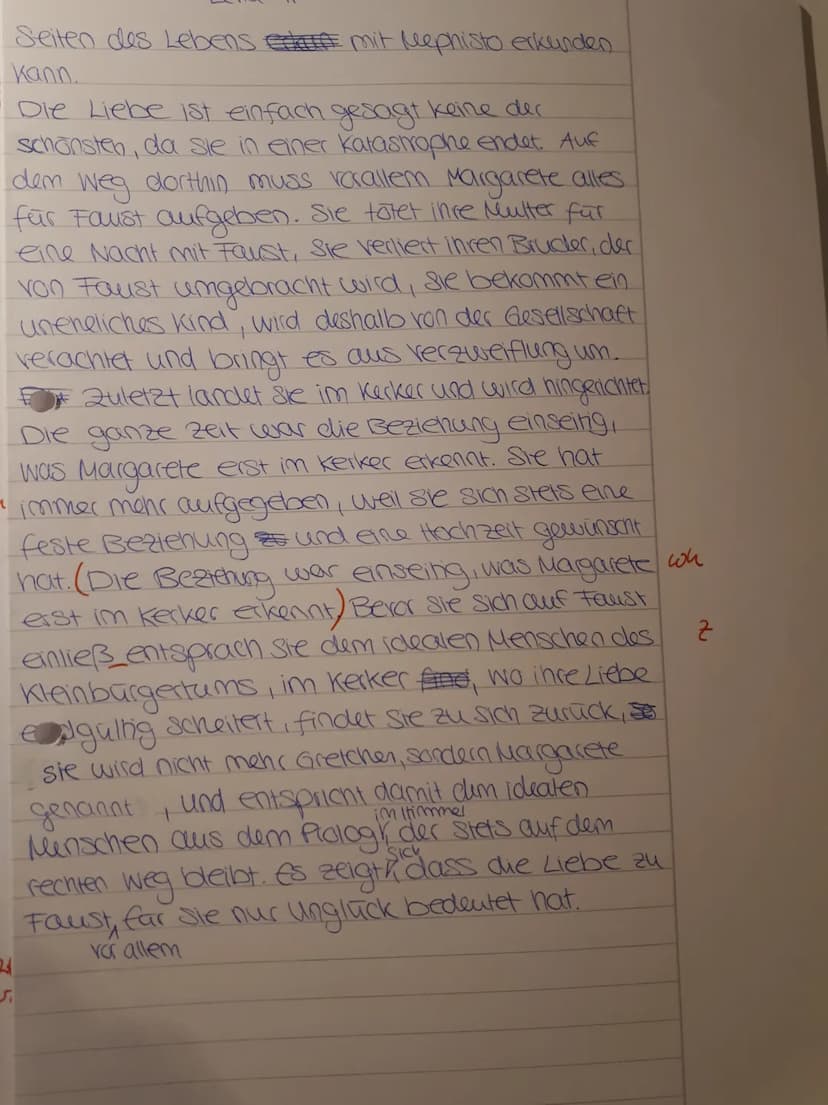 Seiten des Lebens mit Mephisto erkunden
kann.
Die Liebe ist einfach gesagt keine der
schönsten, da sie in einer Katastrophe endet. Auf
dem Weg dorthin muss vorallem Margarete alles
für Faust aufgeben. Sie tötet ihre Mutter für
eine Nacht mit Faust, sie verliert ihren Bruder, der
von Faust umgebracht wird, sie bekommt ein
uneheliches Kind, wird deshalb von der Gesellschaft
verachtet und bringt es aus Verzweiflung um.
Zuletzt landet sie im Kerker und wird hingerichtet.
Die ganze Zeit war die Beziehung einseitig,
was Margarete erst im Kerker erkennt. Sie hat
immer mehr aufgegeben, weil sie sich stets eine
feste Beziehung und eine Hochzeit gewünscht
hat. (Die Beziehung war einseitig, was Margarete Wh
erst im Kerker erkennt.) Bevor sie sich auf Faust
einließ_entsprach sie dem idealen Menschen des Z
Kleinbürgertums, im Kerker, wo ihre Liebe
endgültig scheitert, findet sie zu sich zurück,
sie wird nicht mehr Gretchen, sondern Margarete
genannt, und entspricht damit dem idealen
im Himmel
Menschen aus dem Prolog, der stets auf dem
sich
rechten Weg bleibt. Es zeigt, dass die Liebe zu
Faust, für sie nur Unglück bedeutet hat.
vor allem